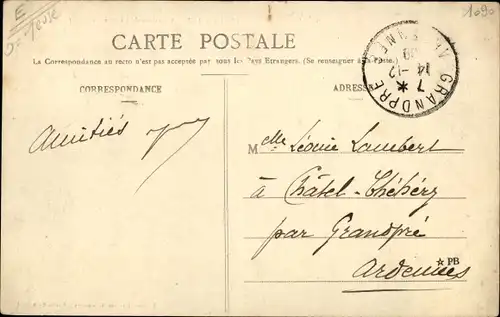 E
1090
CARTE POSTALE
La Correspondance au recto n'est pas acceptée par tous les Pays Etrangers. (Se renseigner à la Poste.)
CORRESPONDANCE
ADRESSE
GRANDPRÉ
7 *
14 -12
09
ARDENNES
Amitiés
Melle Léonie Lambert
à Châtel-Chéhéry
par Grandpré
Ardennes
☆PB